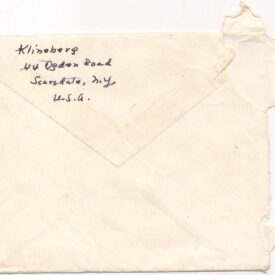 Klineberg
44 Ogden Road
Scarsdale, N.Y.
U.S.A.